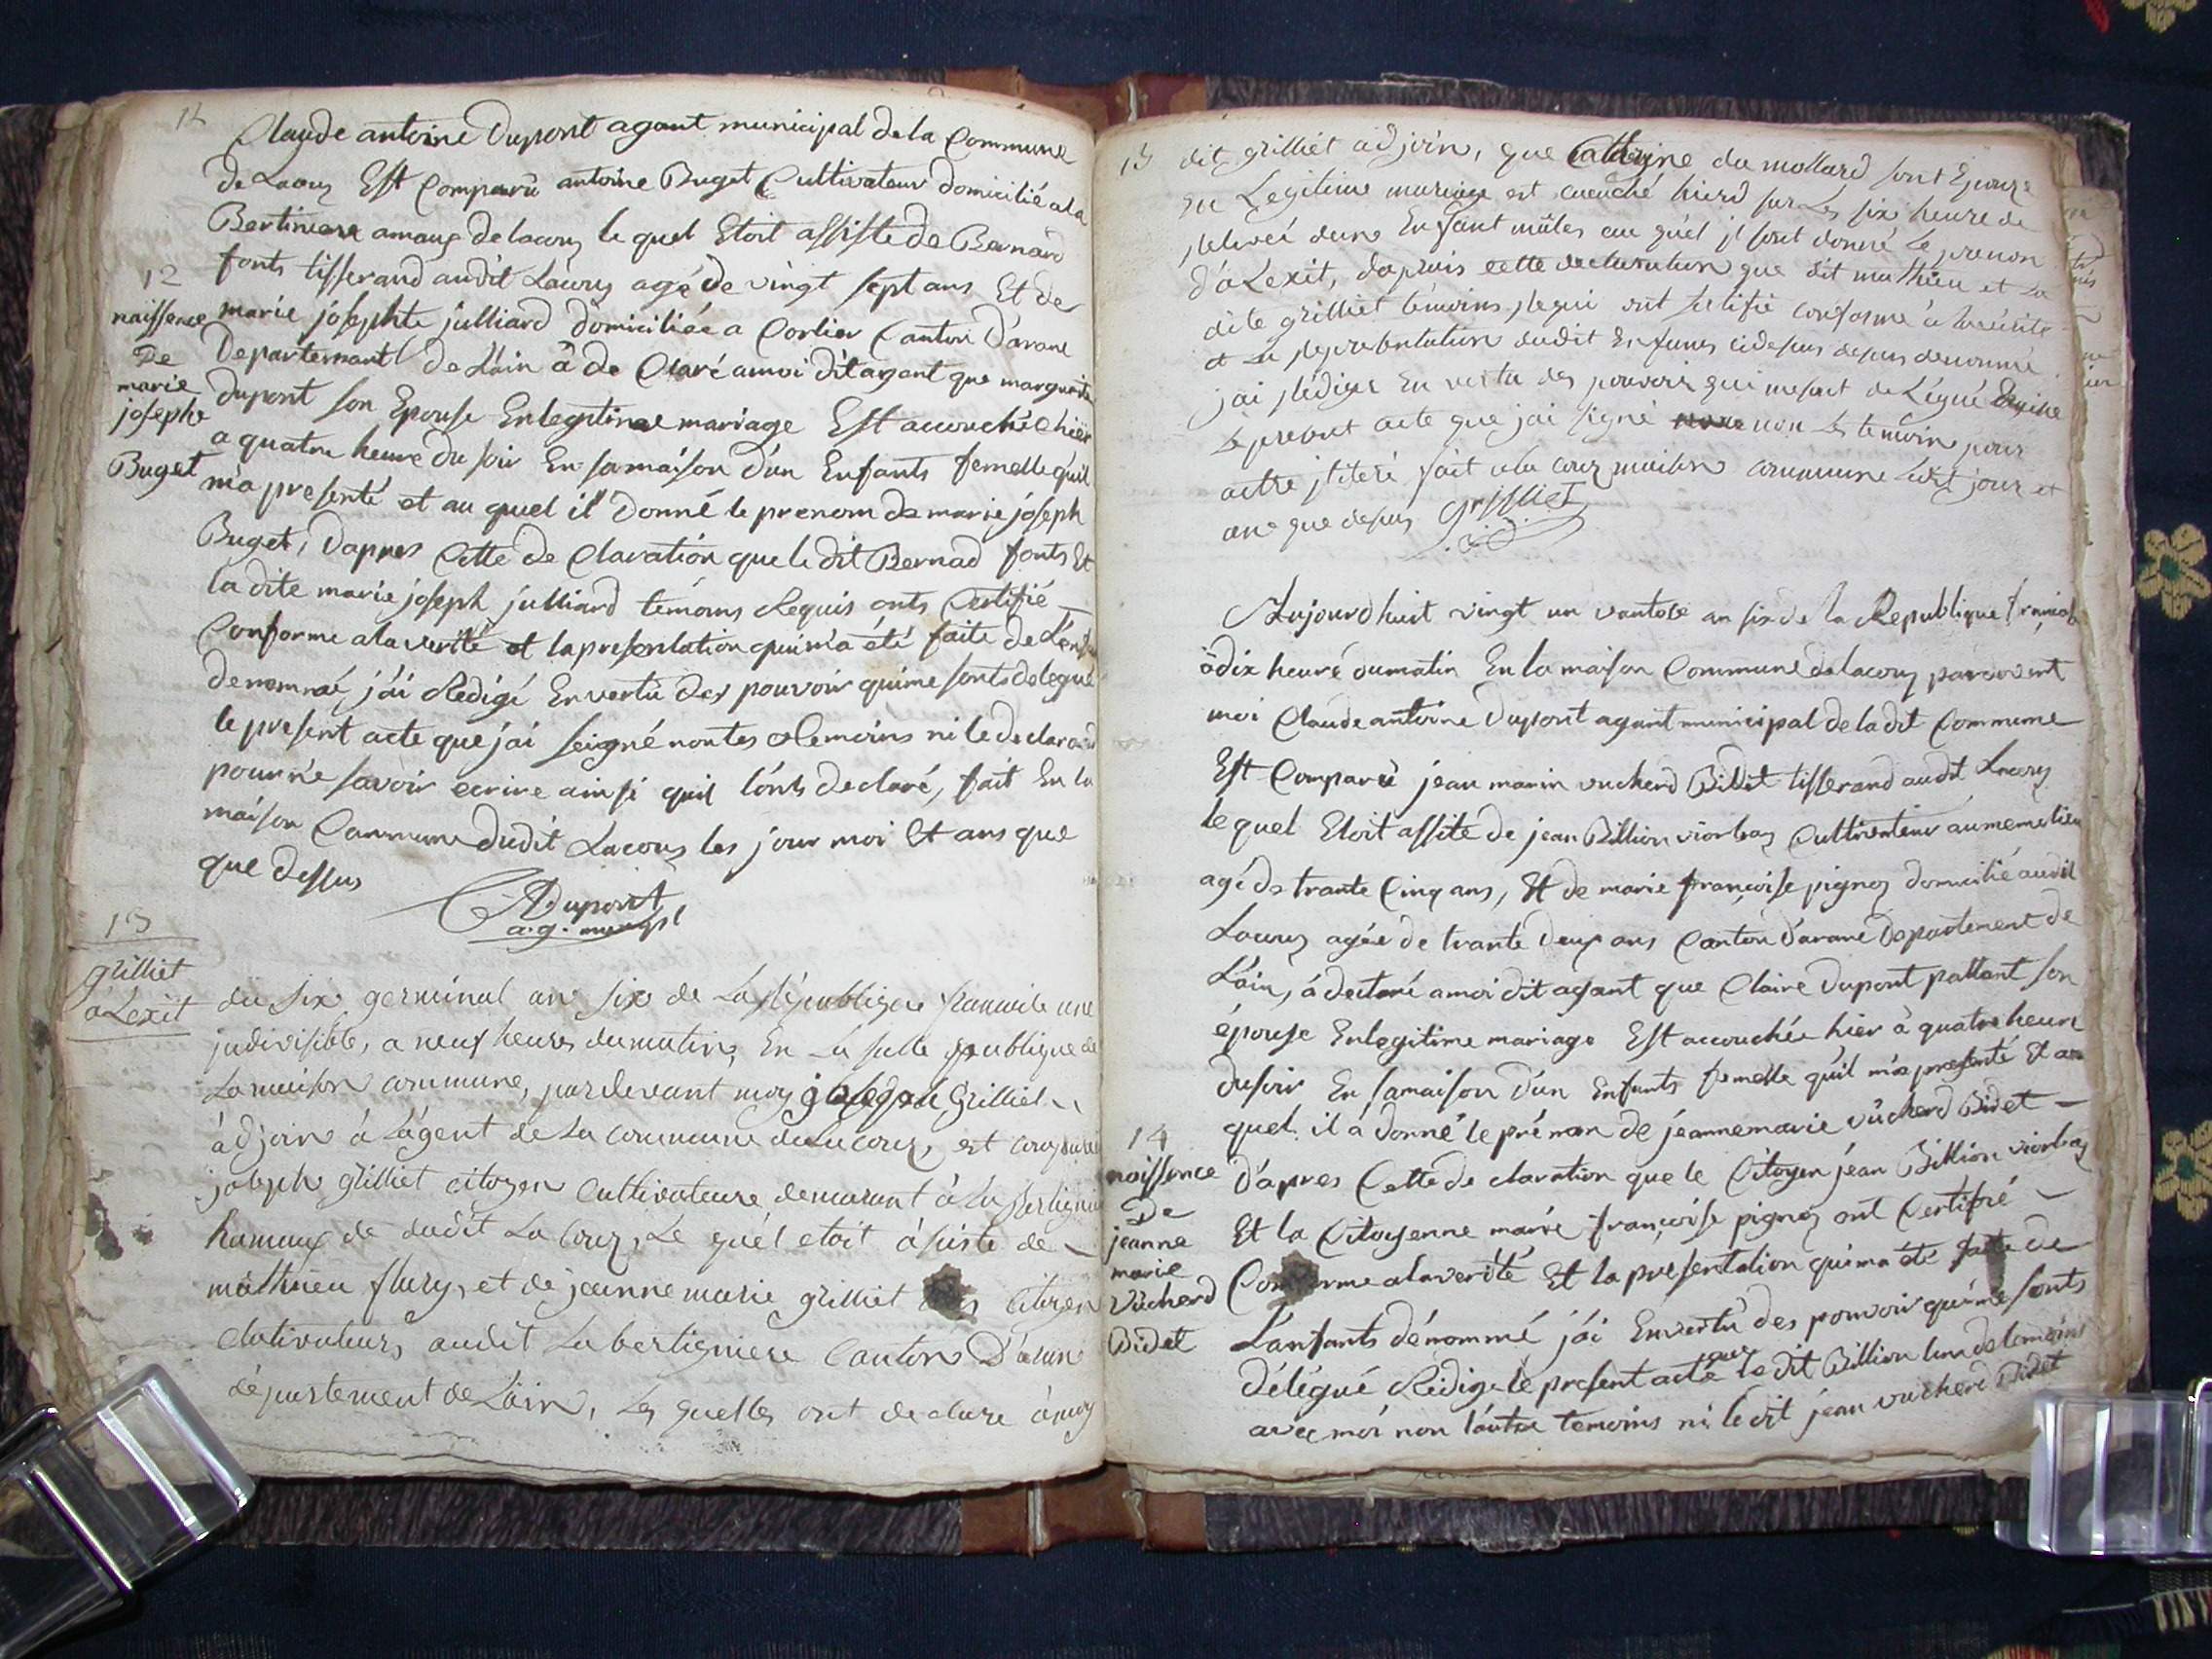 12
Claude antoine Dupont agant municipal de la Commune
de Lacouz Est Comparû antoine Buget Cultivateur domicilié a la
Bertiniere amaux de lacouz le quel Etoit assisté de Bernard
fonts tisserand audit Lacouz agé de vingt sept ans Et de
marie josephte julliard domiciliée a Corlier Canton D'arane
Departemant De L'ain â de Claré amoi dit agent que marguerite
dupont son Epouse En legitime mariage Est accouchée hier
a quatre heure du soir En sa maison d'un Enfants femelle quil
m'a presenté et au quel il Donné le prenom de marie joseph
Buget, Dapres Cette de Claration que le dit Bernad fonts Et
la dite marie joseph julliard temoins Requis onts Certifié
Conforme a la verité et la presentation qui m'a été faite de L'enfant
denommé j'ai Redigé En vertû des pouvoir qui me sonts delegué
le present acte que j'ai seigné non les temoins ni le declarand
pour ne savoir ecrire ainsi quil l'ont declaré, fait En la
maison Commune dudit Lacouz les jour moi Et ans que
que dessus
C A Dupont
a.g. municipl
12
naissence
De
marie
josephe
Buget
13
grilliet
àLexit
du six germinal an six de La République francoise une
indivisible, a neuf heures du matin, En La salle publique de
La maison commune, par devant moy joseph Grilliet
àdjoin à L'agent de La commune de La couz, est comparu
joseph grilliet citoyen Cultivateure demeurant à La Bertignier
hamaux de dudit La Couz, Le quel etoit àsisté de
mathieu flury, et de jeanne marie grilliet citoyen
Cultivateurs audit La bertigniere Canton D'arane
département de L'ain, Les quelles ont declare à moy
13
dit grilliet adjoin, que Catherine du mollard sont Epouze
En Legitime mariage est acouché hierd sur Les six heure de
dun Enfant mâles au quel il sont donné Le prenon
d'aLexit, dapruis cette declaration que dit mathieu et La
dite grilliet témoins requi ont sertifié conforme a la verité
et La representation dudit Enfans cidesus desus denommé
jai rédiger En vertu des pouvoir qui me sont de Légué
Le present acte que jai signé non Les temoin pour
actre fait a la couz maison commune Ledit jour et
an que desus Grilliet
Aujourdhuit vingt un vantose an six de la Republique francoise
à dix heuré du matin En la maison Commune de lacouz par devent
moi Claude antoine Dupont agant municipal de la dit Commune
Est Comparû jean marin vucherd Bidet tisserand audit Lacouz
le quel Etoit assité de jean Billion viorbaz Cultivateur au meme lieu
agé de trante Cinq ans, Et de marie françoise pignoz domicilié audit
Lacouz agée de trante deux ans Canton d'arane Departement de
L'ain, à declaré amoi dit agant que Claire Dupont pattant son
épouse En legitime mariage Est accouchée hier à quatre heure
du soir En sa maison d'un Enfants femelle qu'il m'a presenté Et au
quel il à donné le prénom de jeanne marie vûcherd Bidet
D'apres Cette de claration que le Citoyen jéan Billion viorbaz
Et la Citoyenne marie françoise pignoz ont Certifié
Conforme a la verité Et la presentation qui m'a été faite de
L'anfants dénommé j'ai En vertû des pouvoir qui me sonts
délégué Rédigé le present acte que le dit Billion l'un de temoins
avec moi non l'autre temoins ni le dit jean vucherd Bidet
14
naissence
De
jeanne
marie
vûcherd
Bidet